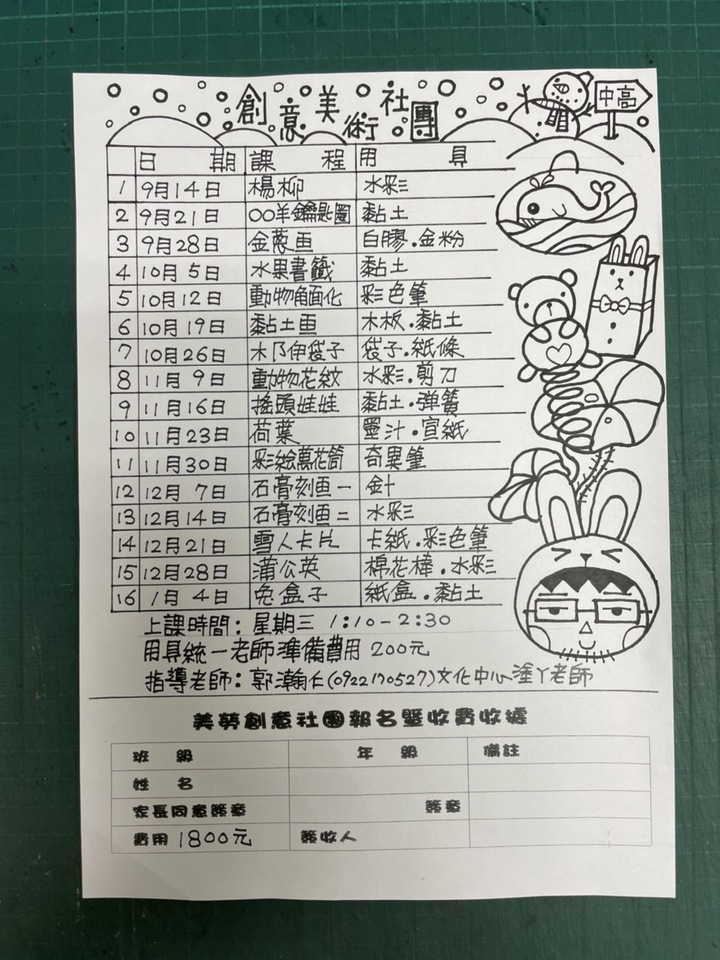 創意美術社團
中高
日期 課程 用具
1 9月14日 楊柳 水彩
2 9月21日 OO羊鑰匙圈 黏土
3 9月28日 金蔥画 白膠.金粉
4 10月5日 水果書籤 黏土
5 10月12日 動物角面化 彩色筆
6 10月19日 黏土画 木板.黏土
7 10月26日 木乃伊袋子 袋子.紙條
8 11月9日 動物花紋 水彩.剪刀
9 11月16日 搖頭娃娃 黏土.弹簧
10 11月23日 荷葉 墨汁.宣紙
11 11月30日 彩繪萬花筒 奇異筆
12 12月7日 石膏刻画一 針
13 12月14日 石膏刻画二 水彩
14 12月21日 雪人卡片 卡紙.彩色筆
15 12月28日 蒲公英 棉花棒.水彩
16 1月4日 兔盒子 紙盒.黏土
上課時間：星期三 1:10-2:30
用具統一老師準備費用 200元
指導老師：郭瀚仁(0922170527)文化中心塗丫老師
美勞創意社團報名暨收費收據
班級 年級 備註
姓名
家長同意簽章 簽章
費用 1800元 簽收人